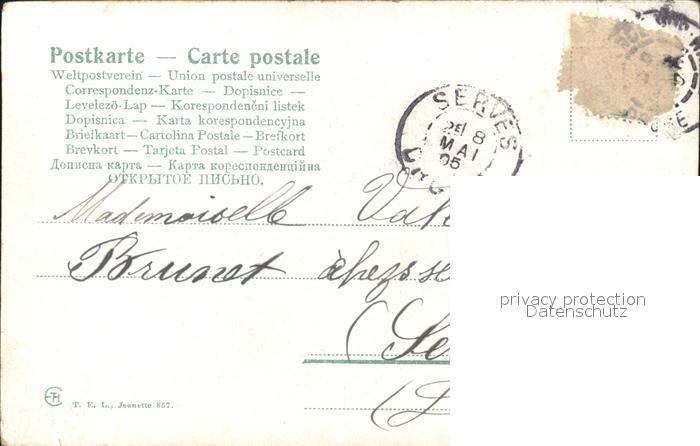 Postkarte — Carte postale
Weltpostverein — Union postale universelle
Correspondenz-Karte — Dopisnice —
Levelező-Lap — Korespondenční listek
Dopisnica — Karta korespondencyjna
Briefkaart — Cartolina Postale — Brefkort
Brevkort — Tarjeta Postal — Postcard
Дописна карта — Карта кореспонденційна
ОТКРЫТОЕ ПИСЬМО.
SERVES
2E 8
MAI
05
Mademoiselle
Brunet
(Se
(D
privacy protection
Datenschutz
T. E. L., Jeanette 857.